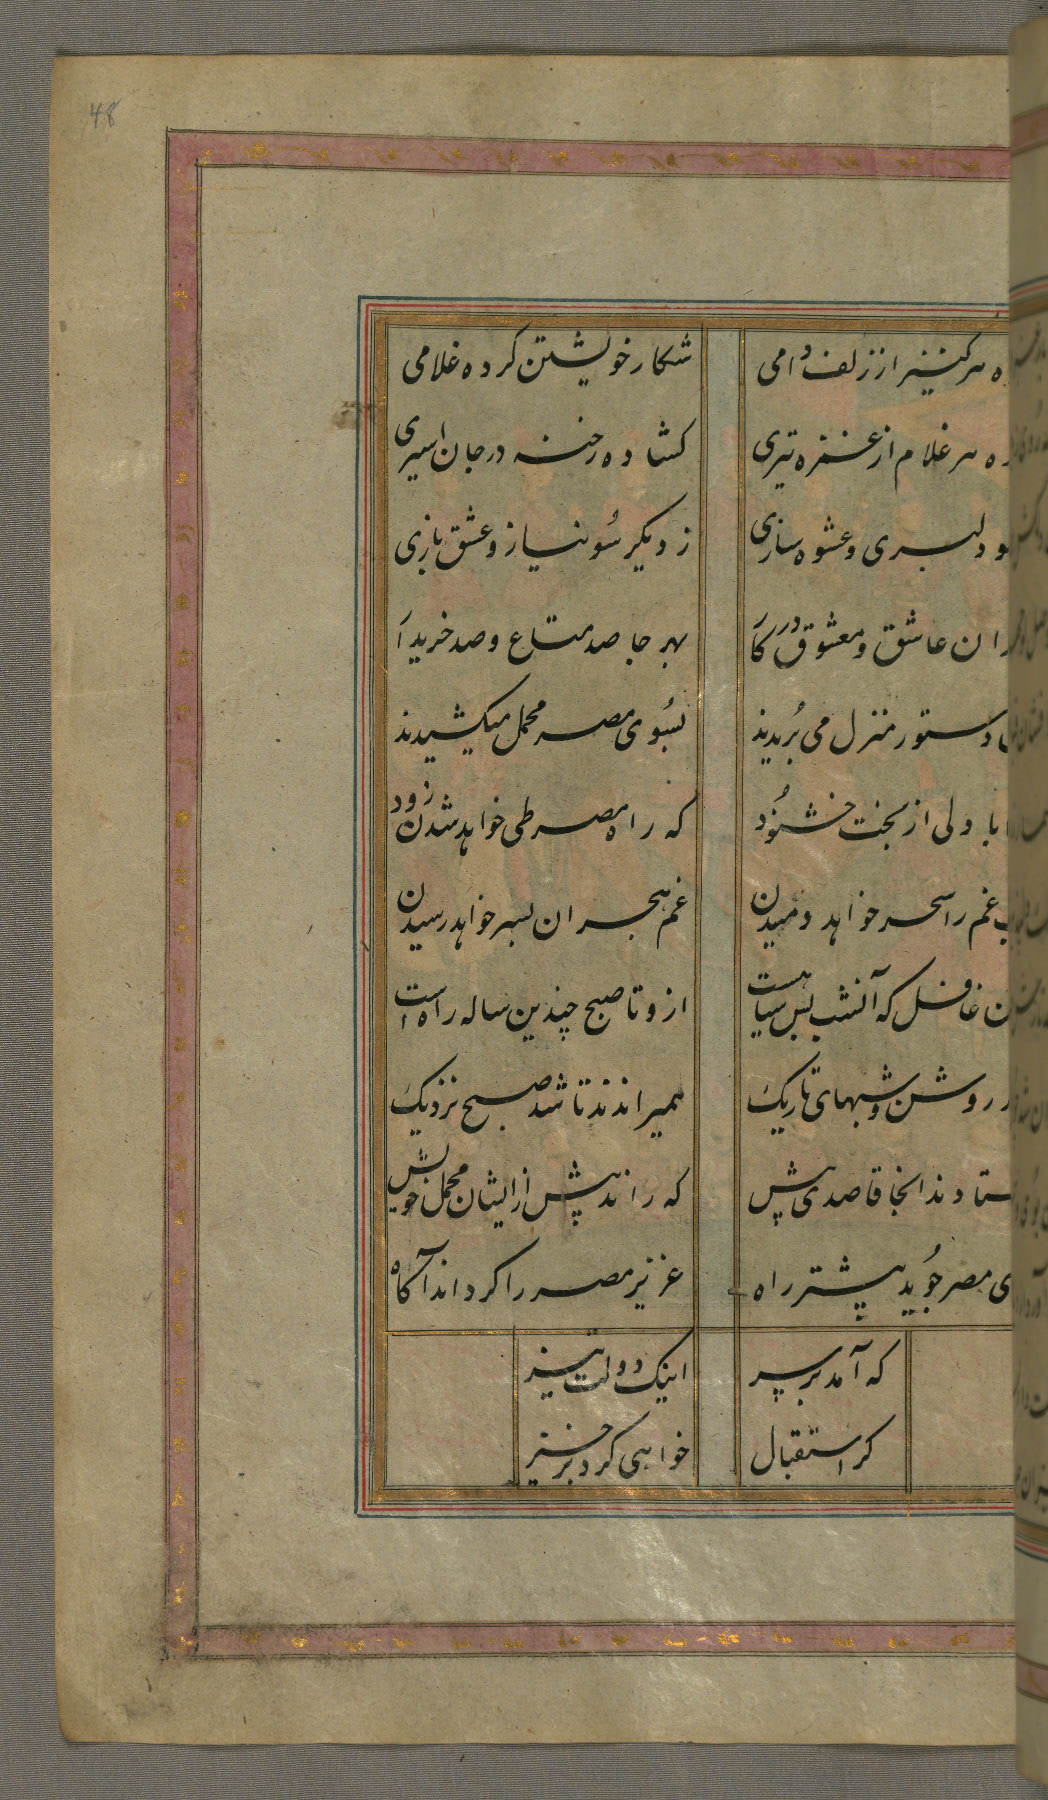 48
ه هر کنیز از زلف دامی شکار خویشتن کرده غلامی
ه هر غلام از غمزه تیری کشاده رخنه در جان اسیری
دلبری و عشوه سازی ز دیکر سو نیاز و عشق بازی
ران عاشق و معشوق در کار بهر جا صد متاع و صد خریدار
دستور منزل می بریدند بسوی مصر محمل میکشیدند
با دلی از بخت خشنود که راه مصر طی خواهد شدن زود
غم را سحر خواهد دمیدن غم هجران بسر خواهد رسیدن
ن غافل که آنشب بس سیاهست ازو تا صبح چندین ساله راه است
روشن و شبهای تاریک همیراندند تا شد صبح نزدیک
ستادند انجا قاصدی پیش که راند پیش از ایشان محمل خویش
ی مصر جوید پیشتر راه عزیز مصر را کرداند آکاه
که آمد بر سر اینک دولت تیز
کر استقبال خواهی کرد برخیز